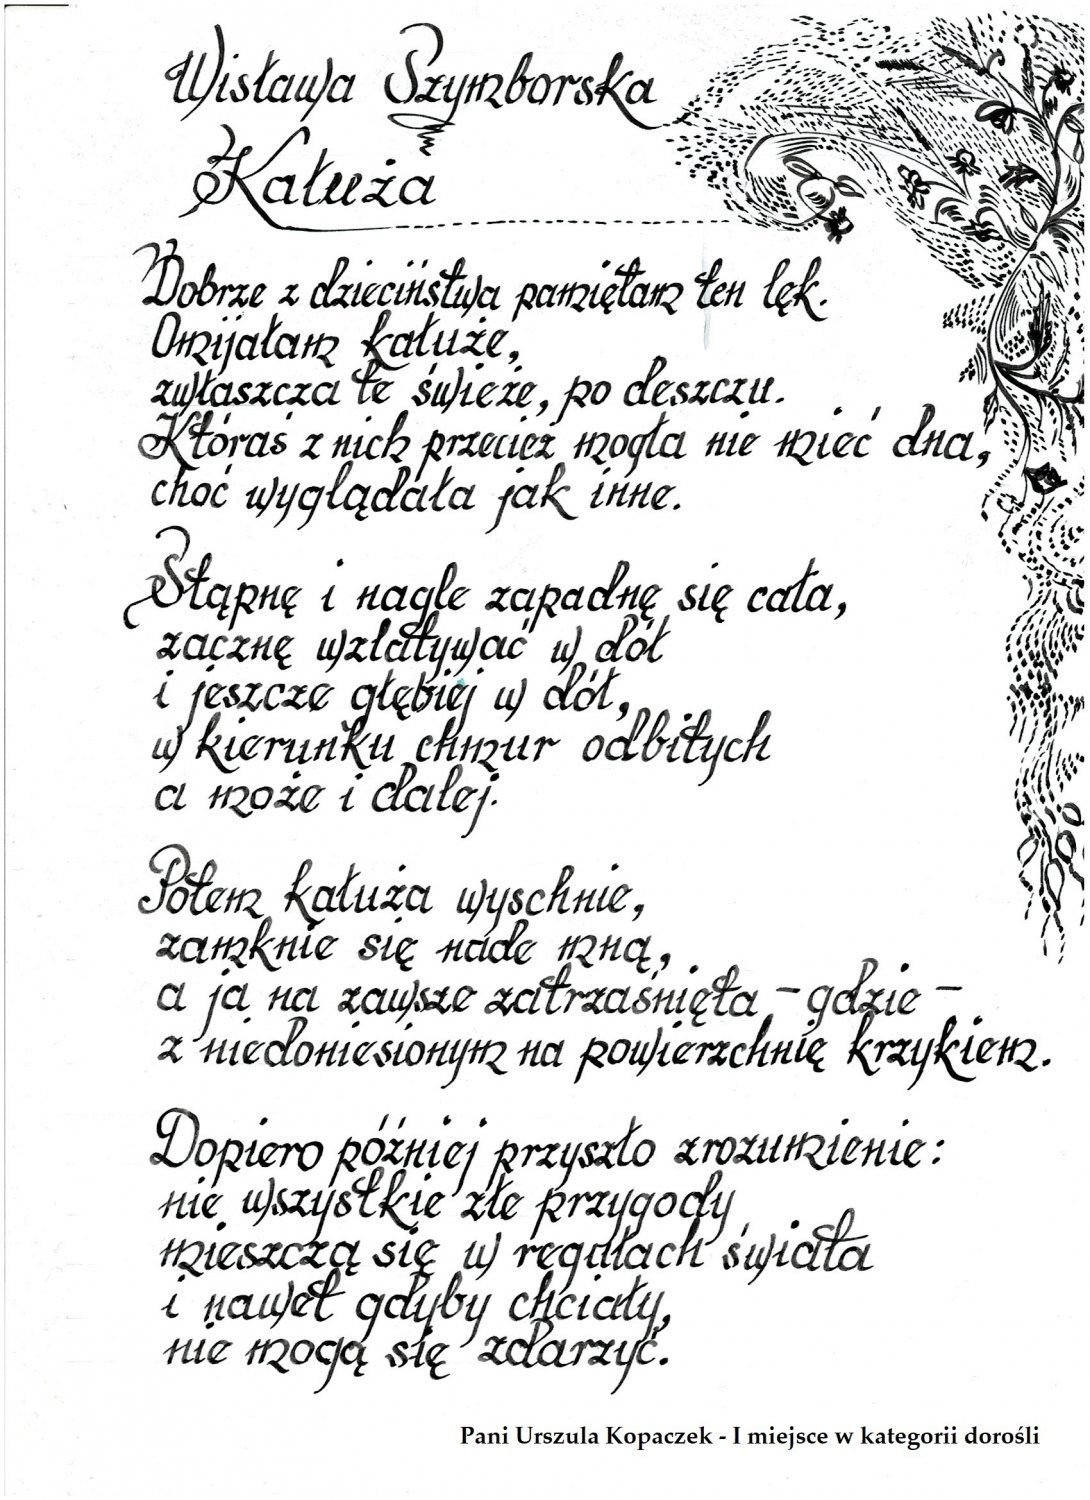 Wisława Szymborska
Kałuża
Dobrze z dzieciństwa pamiętam ten lęk.
Omijałam kałuże,
zwłaszcza te świeże, po deszczu.
Któraś z nich przecież mogła nie mieć dna,
choć wyglądała jak inne.
Stąpnę i nagle zapadnę się cała,
zacznę wzlatywać w dół
i jeszcze głębiej w dół,
w kierunku chmur odbitych
a może i dalej.
Potem kałuża wyschnie,
zamknie się nade mną,
a ja na zawsze zatrzaśnięta – gdzie –
z niedoniesionym na powierzchnię krzykiem.
Dopiero później przyszło zrozumienie:
nie wszystkie złe przygody
mieszczą się w regułach świata
i nawet gdyby chciały,
nie mogą się zdarzyć.
Pani Urszula Kopaczek - I miejsce w kategorii dorośli